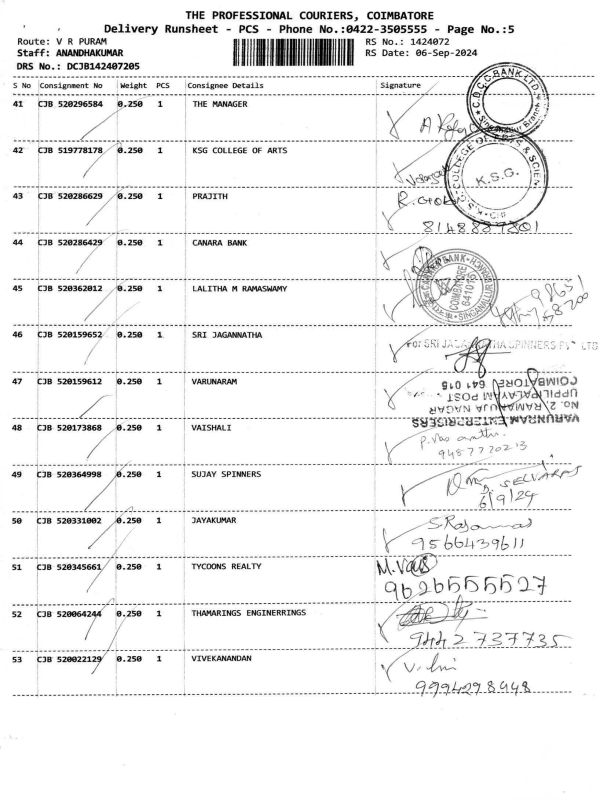 THE PROFESSIONAL COURIERS, COIMBATORE
Delivery Runsheet - PCS - Phone No.:0422-3505555 - Page No.:5
Route: V R PURAM RS No.: 1424072
Staff: ANANDHAKUMAR RS Date: 06-Sep-2024
DRS No.: DCJB142407205
S No Consignment No Weight PCS Consignee Details Signature
41 CJB 520296584 0.250 1 THE MANAGER
C.D.C.C.BANK LTD.
42 CJB 519778178 0.250 1 KSG COLLEGE OF ARTS
COLLEGE OF ARTS & SCIEN
K.S.G.
43 CJB 520286629 0.250 1 PRAJITH
8148889801
44 CJB 520286429 0.250 1 CANARA BANK
COIMBATORE
641015
45 CJB 520362012 0.250 1 LALITHA M RAMASWAMY
46 CJB 520159652 0.250 1 SRI JAGANNATHA
For SRI JAGANNATHA SPINNERS PVT LTD
47 CJB 520159612 0.250 1 VARUNARAM
VARUNRAM ENTERPRISERS
No. 2, RAMANUJA NAGAR
UPPILIPALAYAM POST
COIMBATORE 641 015
48 CJB 520173868 0.250 1 VAISHALI
9487770213
49 CJB 520364998 0.250 1 SUJAY SPINNERS
D. SELVARAJ
6/9/24
50 CJB 520331002 0.250 1 JAYAKUMAR
9566439611
51 CJB 520345661 0.250 1 TYCOONS REALTY
9626555527
52 CJB 520064244 0.250 1 THAMARINGS ENGINERRINGS
9442737735
53 CJB 520022129 0.250 1 VIVEKANANDAN
9994298948